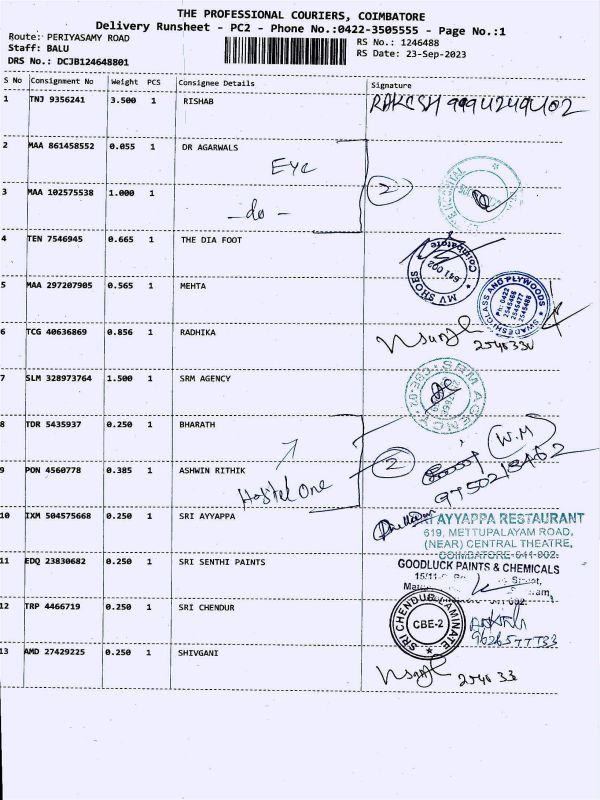 THE PROFESSIONAL COURIERS, COIMBATORE
Delivery Runsheet - PC2 - Phone No.:0422-3505555 - Page No.:1
Route: PERIYASAMY ROAD
RS No.: 1246488
Staff: BALU
RS Date: 23-Sep-2023
DRS No.: DCJB124648801
S No Consignment No Weight PCS Consignee Details Signature
1 TNJ 9356241 3.500 1 RISHAB RAKESH 9994249402
2 MAA 861458552 0.055 1 DR AGARWALS
Eye
3 MAA 102575538 1.000 1
- do -
2
4 TEN 7546945 0.665 1 THE DIA FOOT
MV SHOES Coimbatore 641 002
5 MAA 297207905 0.565 1 MEHTA
SWADESHI GLASS AND PLYWOODS
Ph: 0422
2545466
2545477
2545488
6 TCG 40636869 0.856 1 RADHIKA
7 SLM 328973764 1.500 1 SRM AGENCY
SRM AGENCY CBE-02
8 TDR 5435937 0.250 1 BHARATH
(W.M)
9 PON 4560778 0.385 1 ASHWIN RITHIK
2
Hostel One
10 IXM 504575668 0.250 1 SRI AYYAPPA
AYYAPPA RESTAURANT
619, METTUPALAYAM ROAD,
(NEAR) CENTRAL THEATRE,
COIMBATORE-641-002.
11 EDQ 23830682 0.250 1 SRI SENTHI PAINTS
GOODLUCK PAINTS & CHEMICALS
12 TRP 4466719 0.250 1 SRI CHENDUR
SRI CHENDUR LAMINATE
CBE-2
13 AMD 27429225 0.250 1 SHIVGANI